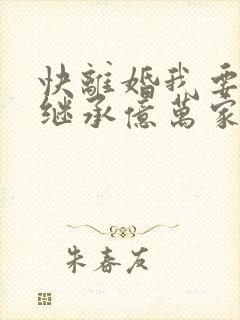 快離婚我要
继承億萬家
朱春友